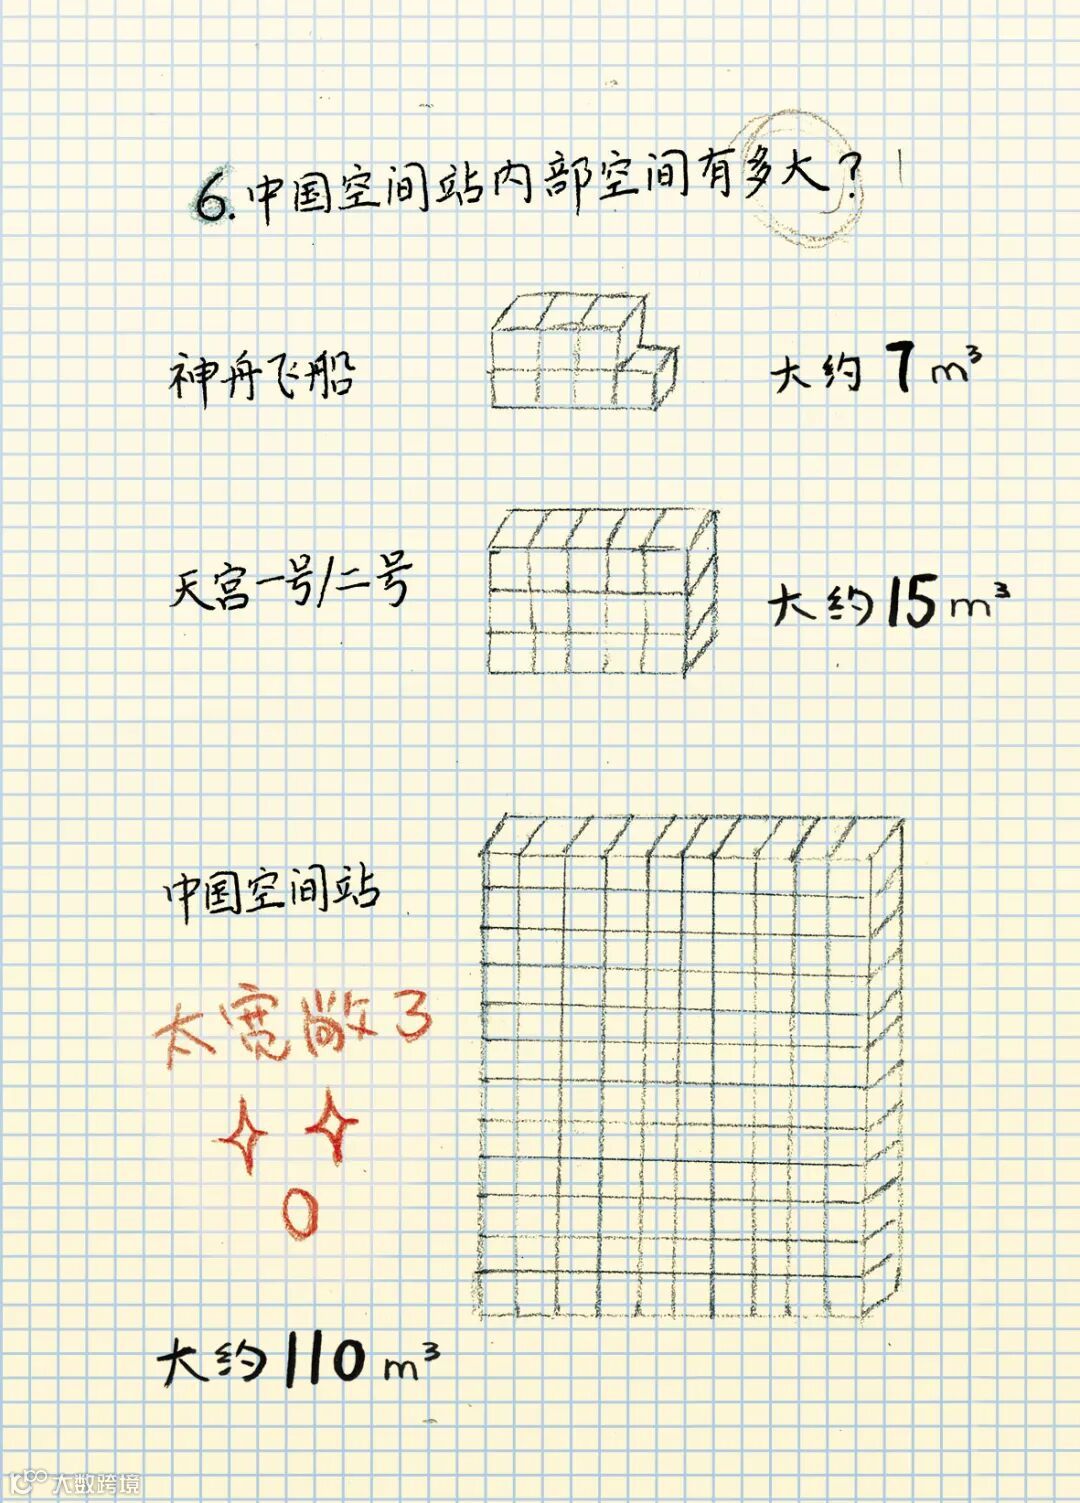 6.中国空间站内部空间有多大?
神舟飞船
大约7m³
天宫一号/二号
大约15m³
中国空间站
太宽敞了
大约110m³
大数跨境